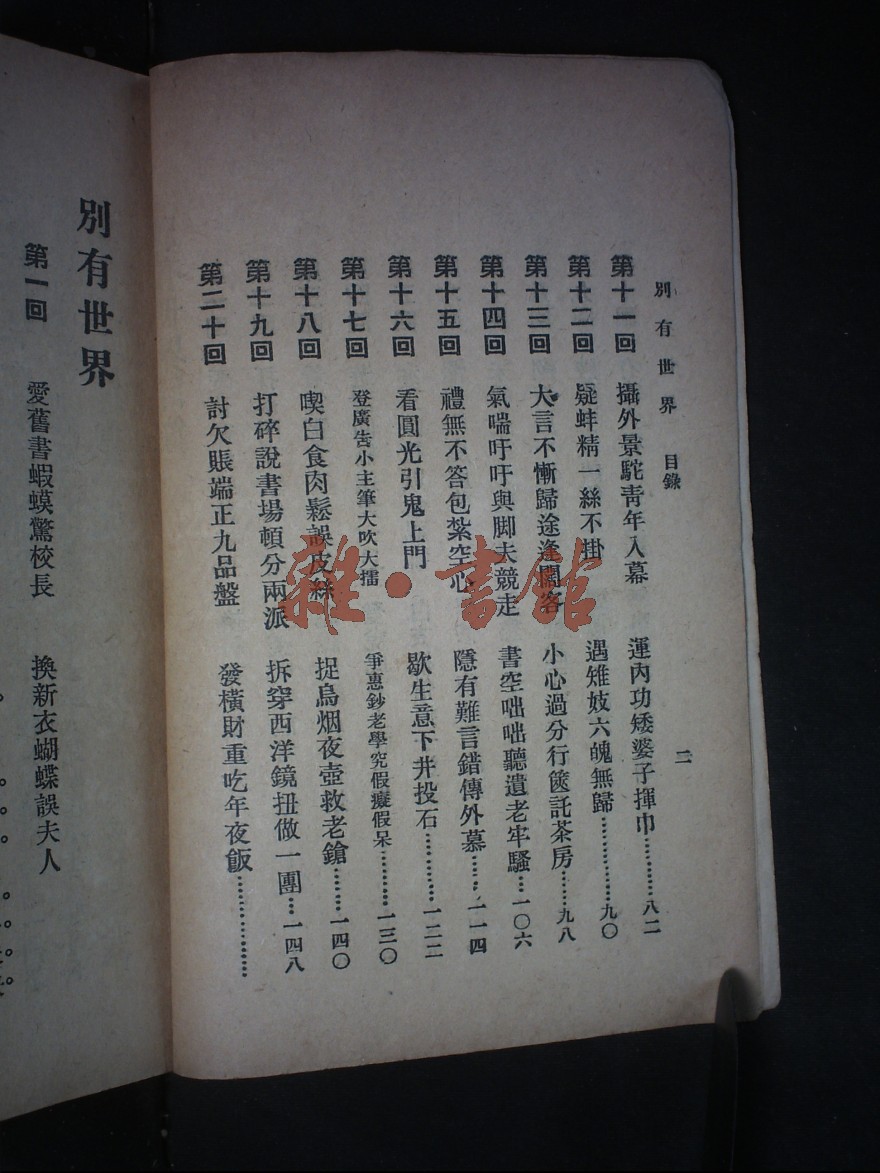 別有世界 目錄 二
第十一回 攝外景駝靑年入幕 運內功矮婆子揮巾…………八二
第十二回 疑蚌精一絲不掛 遇雉妓六魄無歸…………九〇
第十三回 大言不慚歸途逢闊客 小心過分行篋託茶房……九八
第十四回 氣喘吁吁與脚夫競走 書空咄咄聽遺老牢騷…一〇六
第十五回 禮無不答包紮空心 隱有難言錯傳外慕……一一四
第十六回 看圓光引鬼上門 歇生意下井投石…………一二二
第十七回 登廣告小主筆大吹大擂 爭惠鈔老學究假癡假呆………一三〇
第十八回 喫白食肉鬆誤皮絲 捉烏烟夜壺救老鎗……一四〇
第十九回 打碎說書場頓分兩派 拆穿西洋鏡扭做一團…一四八
第二十回 討欠賬端正九品盤 發橫財重吃年夜飯…………
別有世界
第一回 愛舊書蝦蟆驚校長 換新衣蝴蝶誤夫人
雜·書館